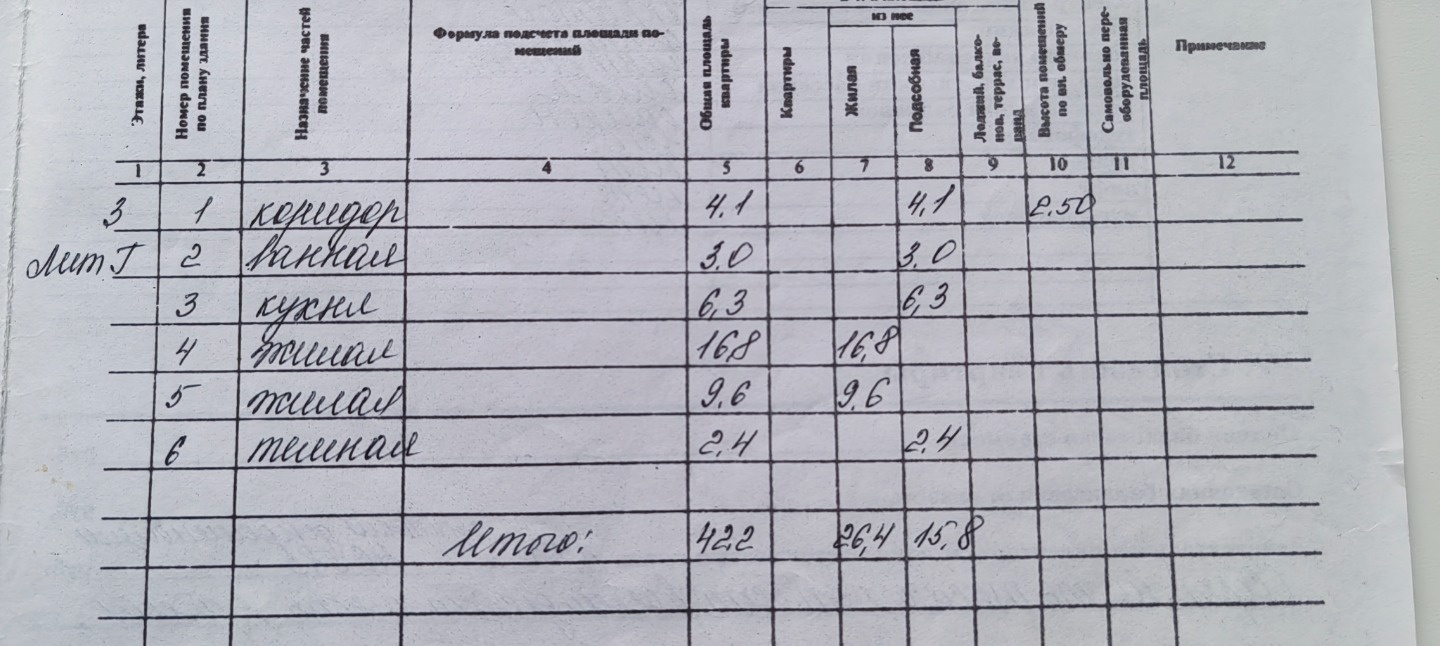 Этажи, литера
Номер помещения по плану здания
Назначение частей помещения
Формула подсчета площади по-
мещений
Общая площадь квартиры
из нее
Квартиры
Жилая
Подсобная
Лоджий, балко-
нов, террас, ве-
ранд
Высота помещений по вн. обмеру
Самовольно пере-
оборудованная площадь
Примечание
1 2 3 4 5 6 7 8 9 10 11 12
3 1 коридор 4.1 4,1 2.50
Лит. Г 2 ванная 3.0 3,0
3 кухня 6,3 6,3
4 жилая 16,8 16,8
5 жилая 9.6 9,6
6 темная 2,4 2,4
Итого: 42,2 26,4 15,8